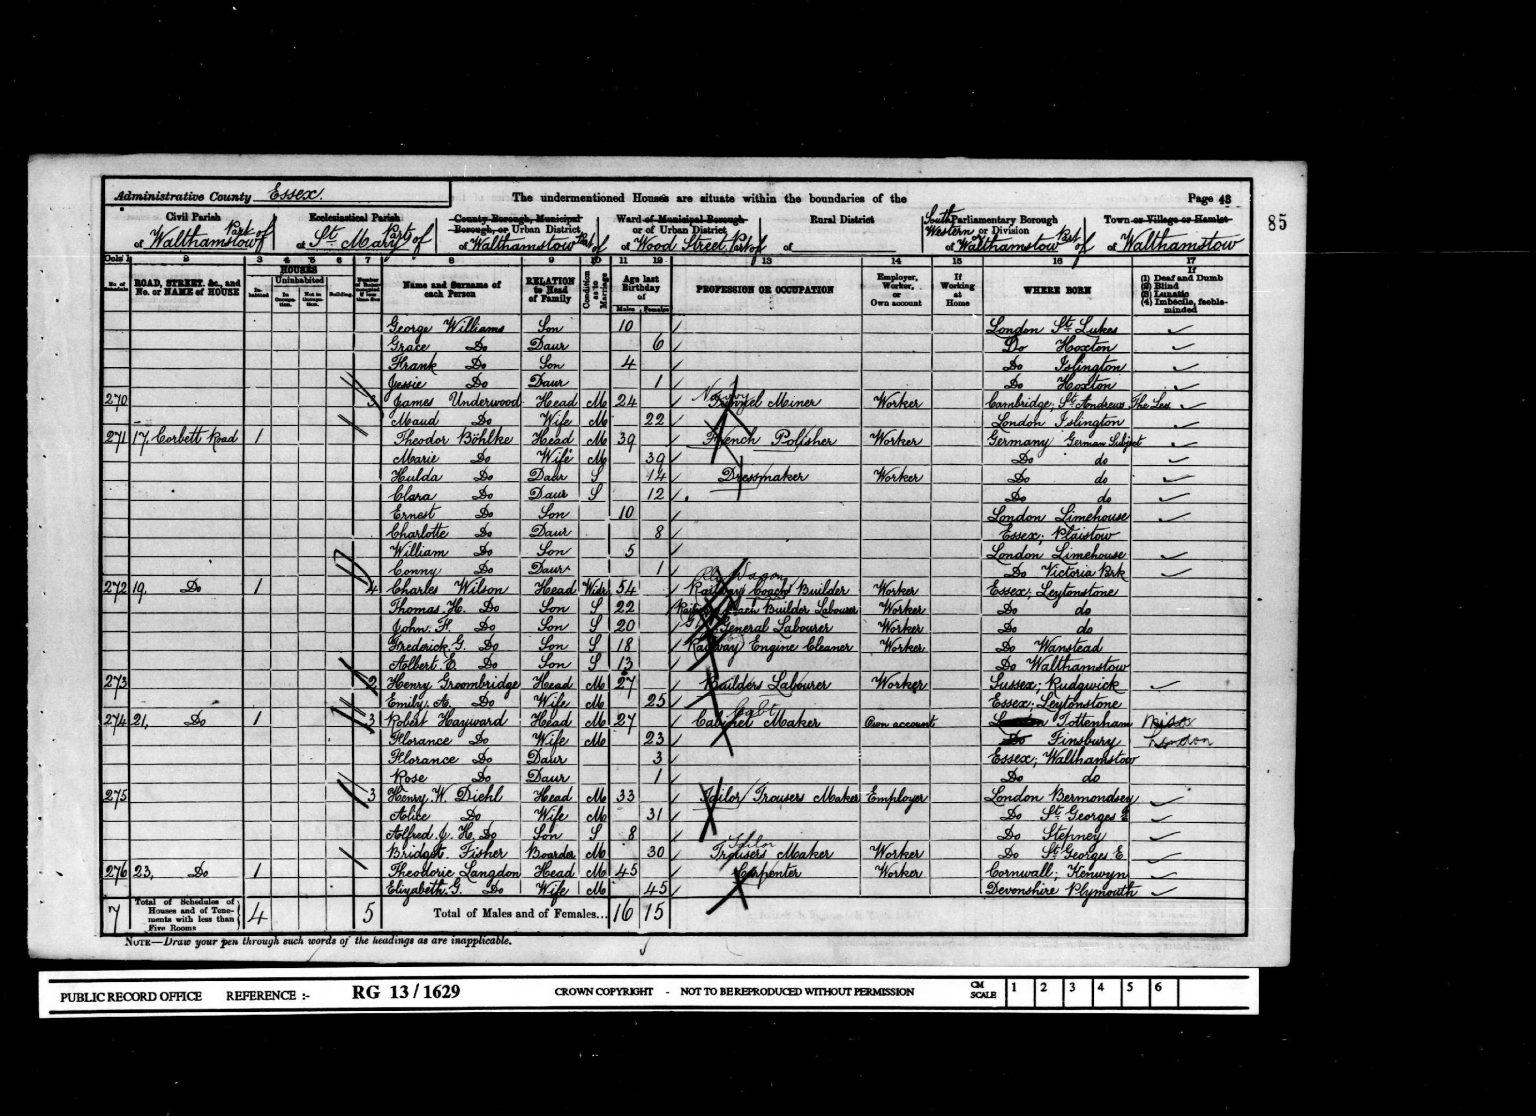 Administrative County Essex.
The undermentioned Houses are situate within the boundaries of the
Page 43
85
Civil Parish of Walthamstow Part of
Ecclesiastical Parish of St. Mary Part of
County Borough, Municipal Borough, or Urban District of Walthamstow Part of
Ward of Municipal Borough or of Urban District of Wood Street Part of
Rural District of
South Western Parliamentary Borough or Division of Walthamstow Part of
Town or Village or Hamlet of Walthamstow
Cols 1 2 3 4 5 6 7 8 9 10 11 12 13 14 15 16 17
No. of Schedule
ROAD, STREET, &c., and No. or NAME of HOUSE
HOUSES
Inhabited
Uninhabited
In Occupation.
Not in Occupation.
Building.
Name and Surname of each Person
RELATION to Head of Family
Condition as to Marriage
Age last Birthday of
Males Females
PROFESSION OR OCCUPATION
Employer, Worker, or Own account
If Working at Home
WHERE BORN
If (1) Deaf and Dumb (2) Blind (3) Lunatic (4) Imbecile, feeble-minded
George Williams Son 10 London St. Lukes
Grace Do Daur 6 Do Hoxton
Frank Do Son 4 Do Islington
Jessie Do Daur 1 Do Hoxton
270 3 James Underwood Head M 24 Navvy Tunnel Miner Worker Cambridge; St. Andrews The Less
Maud Do Wife M 22 London Islington
271 17, Corbett Road 1 Theodor Böhlke Head M 39 French Polisher Worker Germany German Subject
Marie Do Wife M 39 Do do
Hulda Do Daur S 14 Dressmaker Worker Do do
Clara Do Daur S 12 Do do
Ernest Do Son 10 London Limehouse
Charlotte Do Daur 8 Essex; Plaistow
William Do Son 5 London Limehouse
Conny Do Daur 1 Do Victoria Prk
272 19, Do 1 4 Charles Wilson Head Widr 54 Rly Wagon Railway Coach Builder Worker Essex; Leytonstone
Thomas. H. Do Son S 22 Railway Coach Builder Labourer Worker Do do
John. F. Do Son S 20 General Labourer Worker Do do
Frederick G. Do Son S 18 Railway Engine Cleaner Worker Do Wanstead
Albert E. Do Son S 13 Do Walthamstow
273 2 Henry Groombridge Head M 27 Builders Labourer Worker Sussex; Rudgwick
Emily. A. Do Wife M 25 Essex; Leytonstone
274 21, Do 1 3 Robert Hayward Head M 27 Cabt Cabinet Maker Own account London Tottenham
Florance Do Wife M 23 Do Finsbury London
Florance Do Daur 3 Essex; Walthamstow
Rose Do Daur 1 Do do
275 3 Henry. W. Diehl Head M 33 Tailor Trousers Maker Employer London Bermondsey
Alice Do Wife M 31 Do St. Georges E
Alfred. J. H. Do Son S 8 Do Stepney
Bridget. Fisher Boarder M 30 Tailor Trousers Maker Worker Do St. Georges E
276 23, Do 1 Theodorie Langdon Head M 45 Carpenter Worker Cornwall; Kenwyn
Elizabeth. G. Do Wife M 45 Devonshire Plymouth
7 Total of Schedules of Houses and of Tenements with less than Five Rooms 4 5 Total of Males and of Females... 16 15
NOTE—Draw your pen through such words of the headings as are inapplicable.
PUBLIC RECORD OFFICE REFERENCE :- RG 13 / 1629 CROWN COPYRIGHT - NOT TO BE REPRODUCED WITHOUT PERMISSION CM SCALE 1 2 3 4 5 6